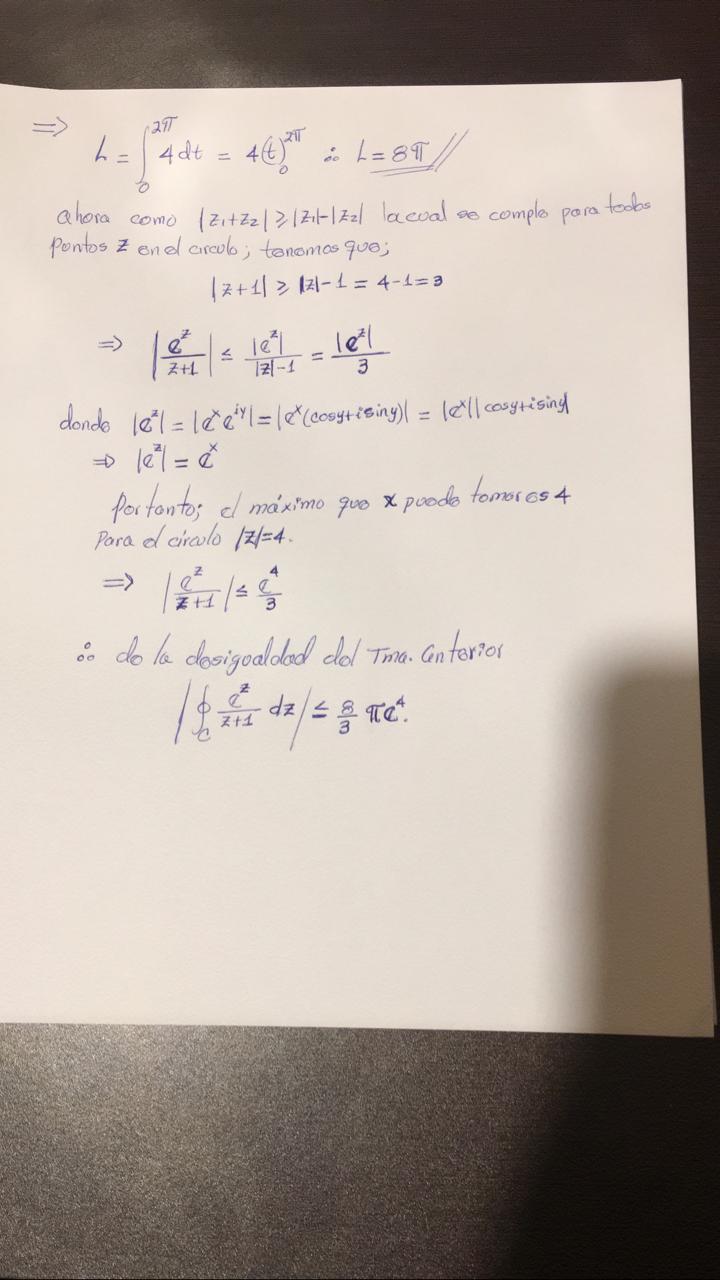 ⇒ L = ∫₀^{2π} 4 dt = 4(t)₀^{2π} ∴ L = 8π //
Ahora como |z₁+z₂| ≥ |z₁|-|z₂| la cual se cumple para todos
Puntos z en el circulo; tenemos que;
|z+1| ≥ |z|-1 = 4-1 = 3
⇒ |e^z/(z+1)| ≤ |e^z|/(|z|-1) = |e^z|/3
donde |e^z| = |e^x e^{iy}| = |e^x(cosy+isiny)| = |e^x||cosy+isiny|
⇒ |e^z| = e^x
Por tanto; el máximo que x puede tomar es 4
Para el círculo |z|=4.
⇒ |e^z/(z+1)| ≤ e^4/3
∴ de la desigualdad del Tma. anterior
|∮_C e^z/(z+1) dz| ≤ 8/3 πe^4.